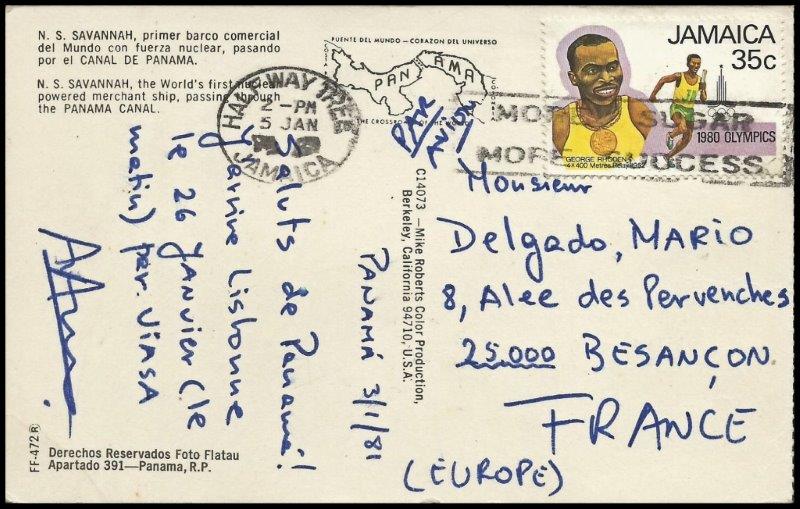 N. S. SAVANNAH, primer barco comercial
del Mundo con fuerza nuclear, pasando
por el CANAL DE PANAMA.
N. S. SAVANNAH, the World's first nuclear
powered merchant ship, passing through
the PANAMA CANAL.
PUENTE DEL MUNDO - CORAZON DEL UNIVERSO
PANAMA
THE CROSSROADS OF THE WORLD
HALF WAY TREE
2-PM
5 JAN
JAMAICA
JAMAICA
35c
1980 OLYMPICS
GEORGE RHODEN
4 x 400 Metres Relay 1952
SUGAR
MORE SUCCESS
PAR
AVION
Saluts de Panamá!
Lisbonne
le 26 Janvier (le
matin) par VIASA
PANAMÁ 3/1/81
C14073 — Mike Roberts Color Production,
Berkeley, California 94710, U.S.A.
Monsieur
Delgado, MARIO
8, Alee des Pervenches
25.000 BESANÇON
FRANCE
(EUROPE)
FF-472 R
Derechos Reservados Foto Flatau
Apartado 391—Panama, R.P.